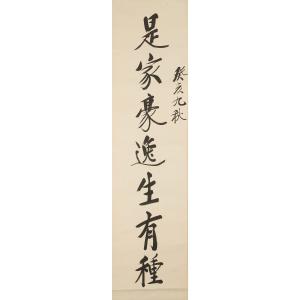 癸亥九秋
是家豪逸生有種